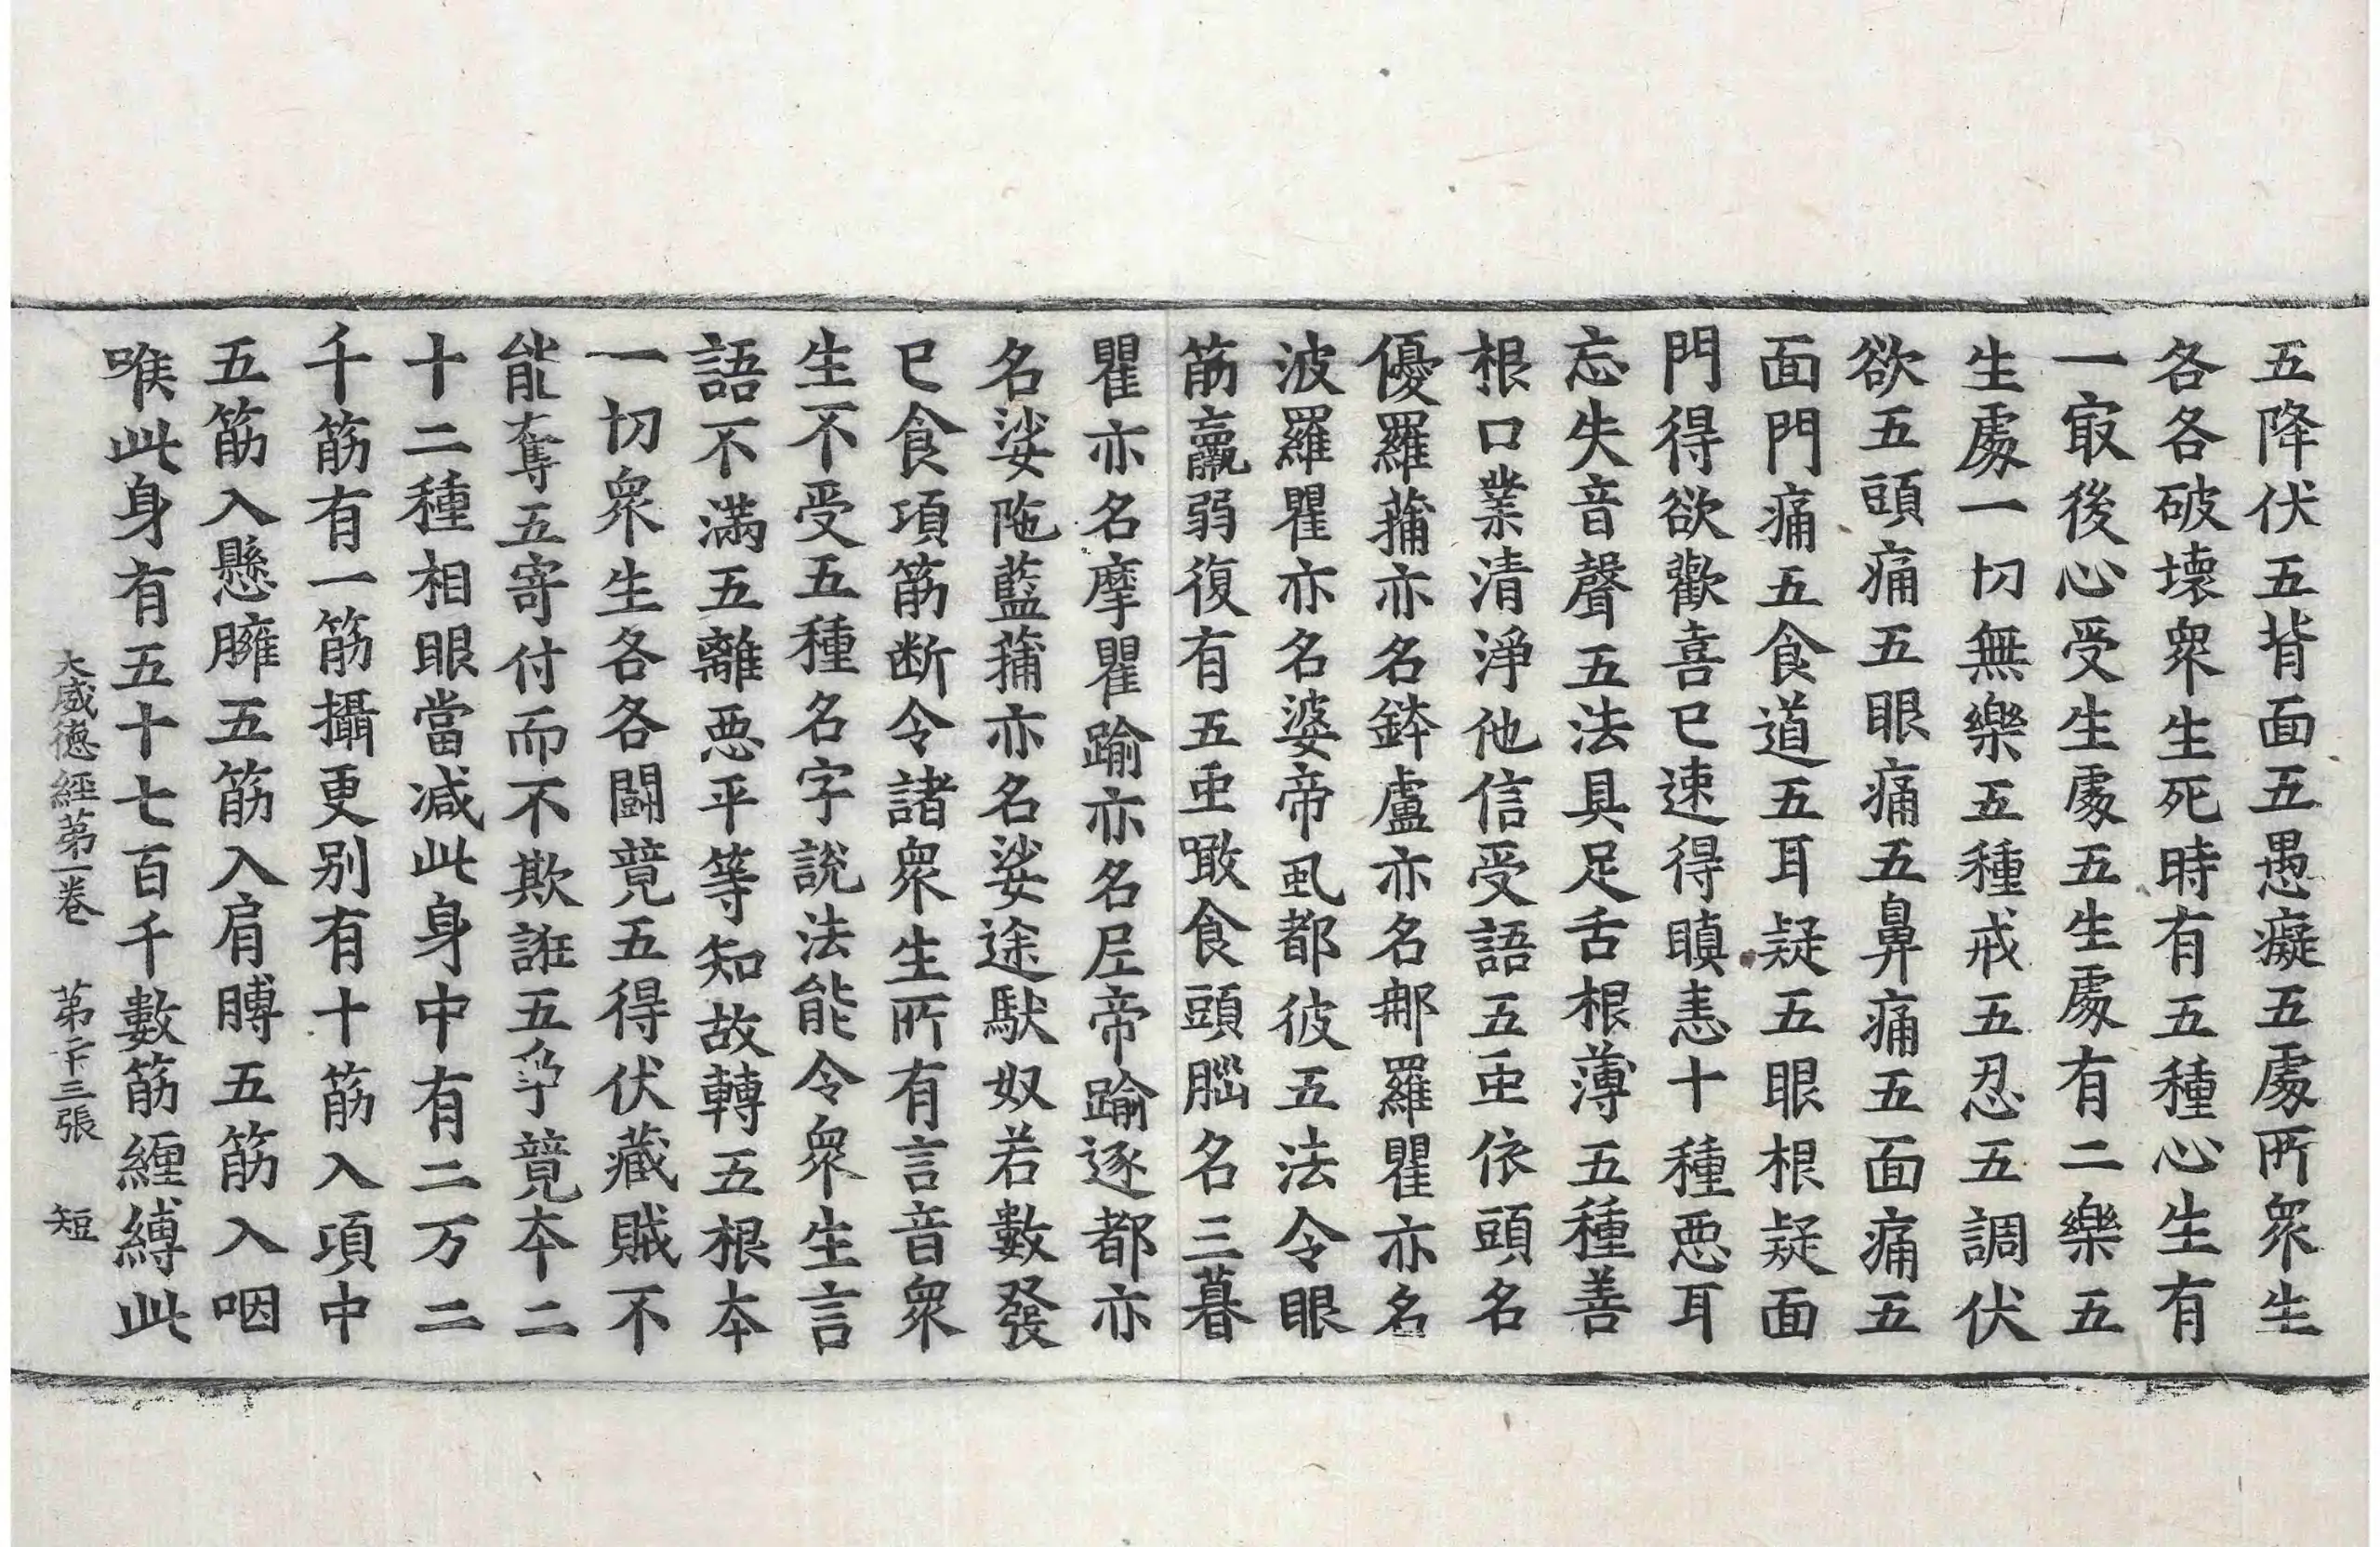 五降伏五背面五愚癡五處所衆生
各各破壞衆生死時有五種心生有
一㝡後心受生處五生處有二樂五
生處一切無樂五種戒五忍五調伏
欲五頭痛五眼痛五鼻痛五面痛五
面門痛五食道五耳疑五眼根疑面
門得欲歡喜已速得瞋恚十種惡耳
忘失音聲五法具足舌根薄五種善
根口業清淨他信受語五虫依頭名
優羅蒲亦名鉢盧亦名那羅瞿亦名
波羅瞿亦名婆帝虱都彼五法令眼
筋羸弱復有五虫噉食頭腦名三暮
瞿亦名摩瞿踰亦名𡰱帝踰逐都亦
名娑陁藍蒲亦名娑途馱奴若數發
已食項筋断令諸衆生所有言音衆
生不受五種名字說法能令衆生言
語不滿五離惡平等知故轉五根本
一切衆生各各鬪竟五得伏藏賊不
能奪五寄付而不欺誑五諍竟本二
十二種相眼當減此身中有二万二
千筋有一筋攝更别有十筋入項中
五筋入懸臃五筋入肩膊五筋入咽
喉此身有五十七百千數筋纏縛此
大威德經第一卷 第二十三張 短